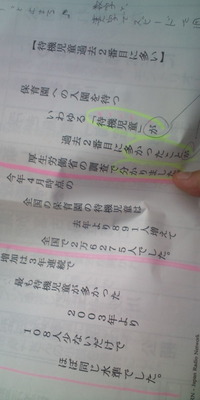 【待機児童過去2番目に多い】
保育園への入園を待つ
いわゆる「待機児童」が
過去2番目に多かったことが
厚生労働省の調査で分かりました。
今年4月時点の
全国の保育園の待機児童は
去年より891人増えて
全国で2万6275人でした。
増加は3年連続で
最も待機児童が多かった
2003年より
108人少ないだけで
ほぼ同じ水準でした。
Japan Radio Network